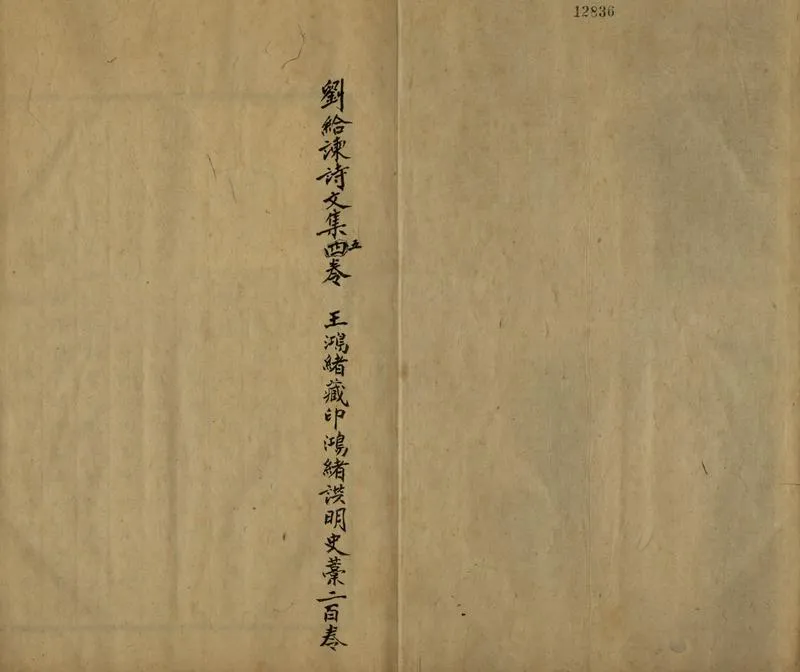 12836
劉給諫詩文集四五卷 王鴻緒藏印鴻緒譔明史藁二百卷